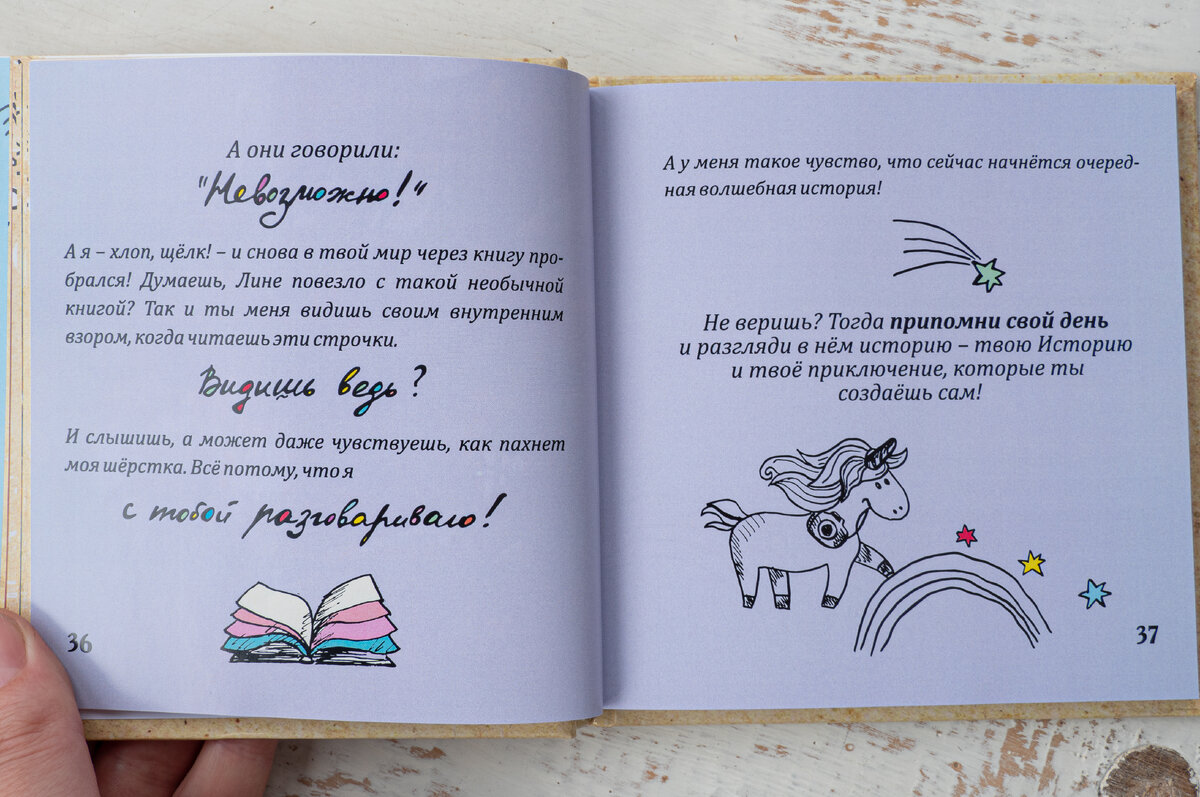 А они говорили:
"Невозможно!"
А я – хлоп, щёлк! – и снова в твой мир через книгу про-
брался! Думаешь, Лине повезло с такой необычной
книгой? Так и ты меня видишь своим внутренним
взором, когда читаешь эти строчки.
Видишь ведь?
И слышишь, а может даже чувствуешь, как пахнет
моя шёрстка. Всё потому, что я
с тобой разговариваю!
36
А у меня такое чувство, что сейчас начнётся очеред-
ная волшебная история!
Не веришь? Тогда припомни свой день
и разгляди в нём историю – твою Историю
и твоё приключение, которые ты
создаёшь сам!
37